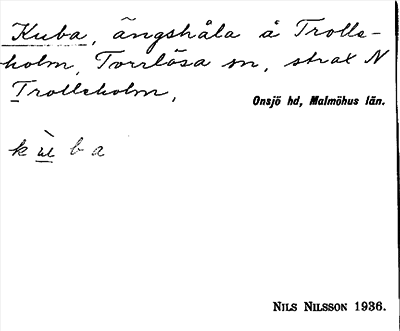 Kuba, ängshåla å Trolle-
holm, Torrlösa sn, strax N
Trolleholm,
Onsjö hd, Malmöhus län.
k ù b a
NILS NILSSON 1936.